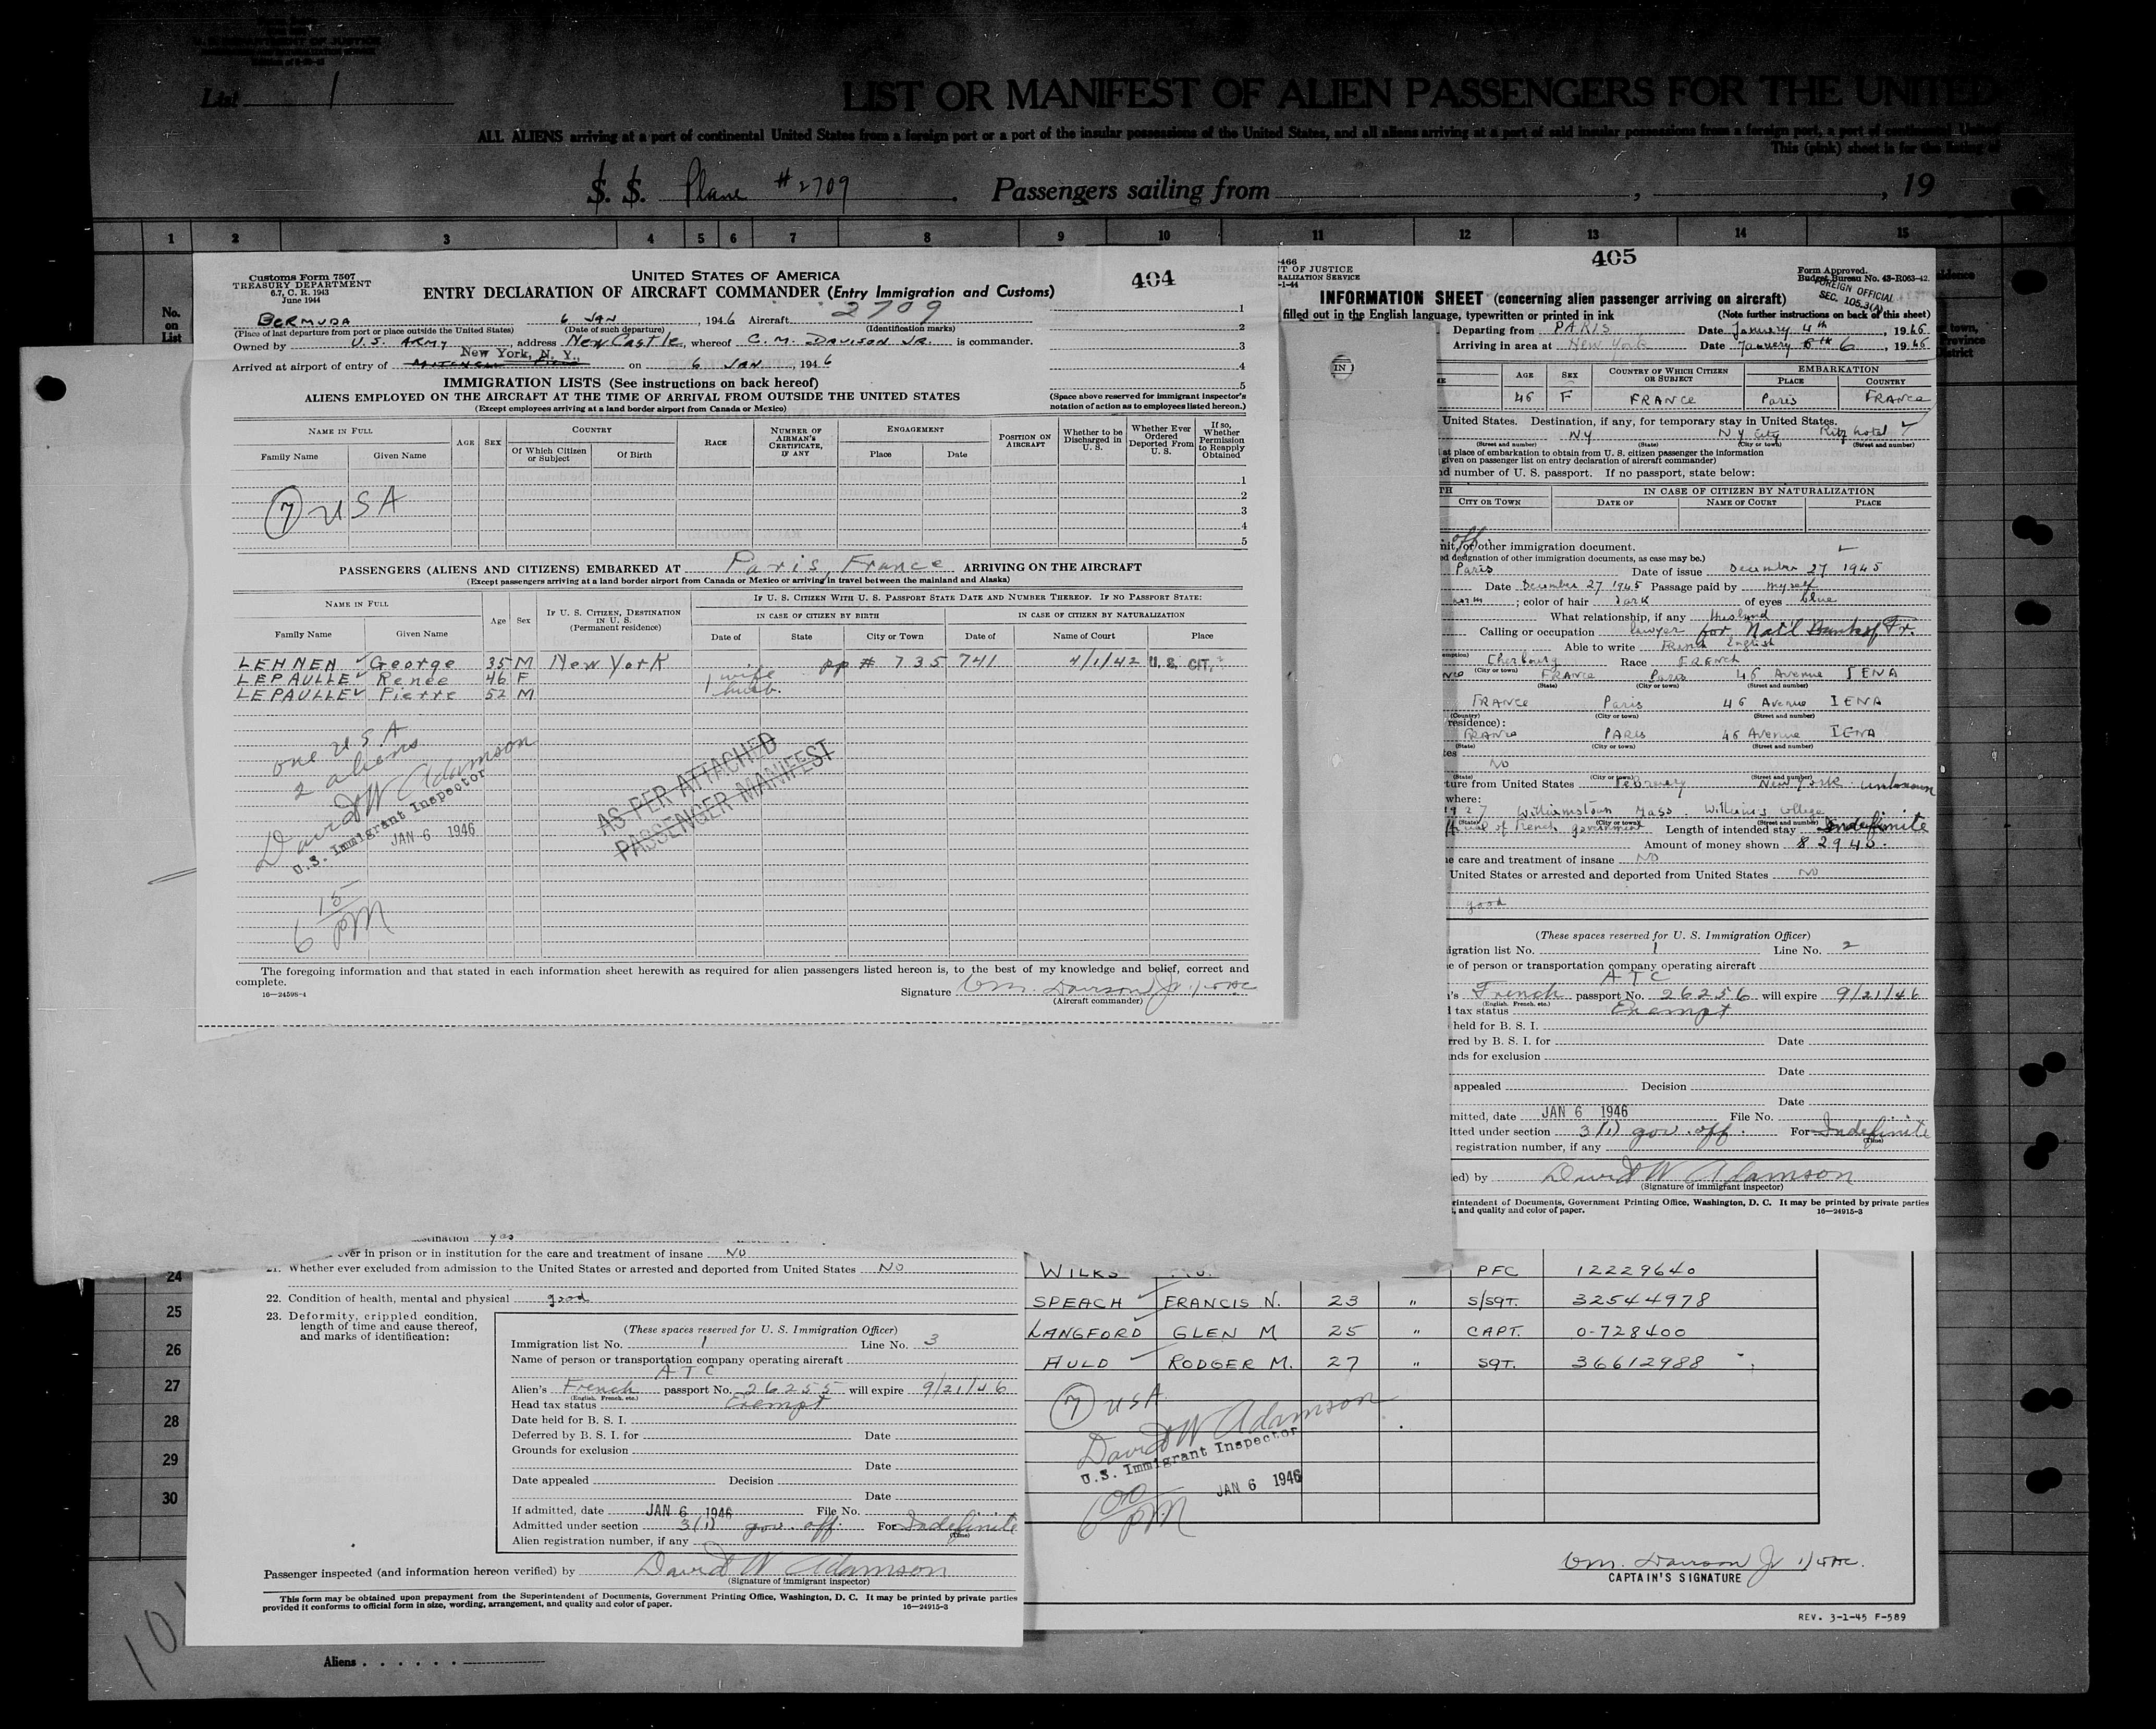 List 1
LIST OR MANIFEST OF ALIEN PASSENGERS FOR THE UNITED
ALL ALIENS arriving at a port of continental United States from a foreign port or a port of the insular possessions of the United States, and all aliens arriving at a port of said insular possessions from a foreign port, a port of continental United
This (pink) sheet is for the listing of
S. S. Plane #2709 . Passengers sailing from , , 19
1 2 3 4 5 6 7 8 9 10 11 12 13 14 15
No. on List
Customs Form 7507
TREASURY DEPARTMENT
6.7, C. R. 1943
June 1944
UNITED STATES OF AMERICA
404
ENTRY DECLARATION OF AIRCRAFT COMMANDER (Entry Immigration and Customs)
BERMUDA 6 JAN , 1946 Aircraft 2709
(Place of last departure from port or place outside the United States) (Date of such departure) (Identification marks)
Owned by U.S. ARMY , address NEW CASTLE, whereof C. M. DAVISON JR. is commander.
New York, N. Y.,
Arrived at airport of entry of MITCHELL FIELD on 6 JAN , 1946
IMMIGRATION LISTS (See instructions on back hereof)
ALIENS EMPLOYED ON THE AIRCRAFT AT THE TIME OF ARRIVAL FROM OUTSIDE THE UNITED STATES
(Except employees arriving at a land border airport from Canada or Mexico)
1
2
3
4
5
(Space above reserved for immigrant inspector's notation of action as to employees listed hereon.)
NAME IN FULL AGE SEX COUNTRY RACE NUMBER OF AIRMAN'S CERTIFICATE, IF ANY ENGAGEMENT POSITION ON AIRCRAFT Whether to be Discharged in U. S. Whether Ever Ordered Deported From U. S. If so, Whether Permission to Reapply Obtained
Family Name Given Name Of Which Citizen or Subject Of Birth Place Date
1
2
3
4
5
7 USA
PASSENGERS (ALIENS AND CITIZENS) EMBARKED AT Paris, France ARRIVING ON THE AIRCRAFT
(Except passengers arriving at a land border airport from Canada or Mexico or arriving in travel between the mainland and Alaska)
NAME IN FULL Age Sex IF U. S. CITIZEN, DESTINATION IN U. S. (Permanent residence) IF U. S. CITIZEN WITH U. S. PASSPORT STATE DATE AND NUMBER THEREOF. IF NO PASSPORT STATE:
IN CASE OF CITIZEN BY BIRTH IN CASE OF CITIZEN BY NATURALIZATION
Family Name Given Name Date of State City or Town Date of Name of Court Place
LEHNEN George 35 M New York pp # 735 741 4/1/42 U.S. CIT.
LEPAULLE Renee 46 F 1 wife
LEPAULLE Pierre 52 M 1 husb.
one USA
2 aliens
David W Adamson
U.S. Immigrant Inspector
JAN 6 1946
6 15 PM
AS PER ATTACHED
PASSENGER MANIFEST
The foregoing information and that stated in each information sheet herewith as required for alien passengers listed hereon is, to the best of my knowledge and belief, correct and
complete.
16—24598-4
Signature
(Aircraft commander)
405
-466
T OF JUSTICE
RALIZATION SERVICE
-1-44
Form Approved.
Budget Bureau No. 43-R063-42.
FOREIGN OFFICIAL
SEC. 105.3(A)
INFORMATION SHEET (concerning alien passenger arriving on aircraft)
filled out in the English language, typewritten or printed in ink (Note further instructions on back of this sheet)
Departing from PARIS Date January 4th , 1946
Arriving in area at New York Date January 6 , 1946
IN
AGE SEX COUNTRY OF WHICH CITIZEN OR SUBJECT EMBARKATION
PLACE COUNTRY
46 F FRANCE Paris FRANCE
United States. Destination, if any, for temporary stay in United States.
NY NY City Ritz hotel
(Street and number) (State) (City or town) (Street and number)
at place of embarkation to obtain from U. S. citizen passenger the information
given on passenger list on entry declaration of aircraft commander)
d number of U. S. passport. If no passport, state below:
TH IN CASE OF CITIZEN BY NATURALIZATION
CITY OR TOWN DATE OF NAME OF COURT PLACE
nit, or other immigration document.
d designation of other immigration documents, as case may be.)
Paris Date of issue December 27 1945
Date December 27 1945 Passage paid by myself
; color of hair Dark of eyes blue
What relationship, if any Husband
Calling or occupation lawyer for Nat'l Bank of Fr.
Able to write French English
Cherbourg Race FRENCH
(City or town)
FRANCE Paris 46 Avenue IENA
(State) (City or town) (Street and number)
FRANCE Paris 46 Avenue IENA
(Country) (City or town) (Street and number)
residence):
FRANCE PARIS 46 Avenue IENA
(State) (City or town) (Street and number)
NO
(State) (City or town) (Street and number)
ture from United States February New York unknown
where:
1927 Williamstown Mass. Williams College
(State) (City or town) (Street and number)
of French government Length of intended stay Indefinite
Amount of money shown $ 2940.
e care and treatment of insane NO
United States or arrested and deported from United States NO
good
(These spaces reserved for U. S. Immigration Officer)
igration list No. 1 Line No. 2
e of person or transportation company operating aircraft
ATC
's French passport No. 26256 will expire 9/21/46
(English, French, etc.)
tax status Exempt
held for B. S. I.
rred by B. S. I. for Date
nds for exclusion
Date
appealed Decision
Date
mitted, date JAN 6 1946 File No.
itted under section 3(1) gov. off. For Indefinite
(Time)
registration number, if any
ed) by David W Adamson
(Signature of immigrant inspector)
rintendent of Documents, Government Printing Office, Washington, D. C. It may be printed by private parties
, and quality and color of paper. 16—24915-3
stination yes
ever in prison or in institution for the care and treatment of insane NO
21. Whether ever excluded from admission to the United States or arrested and deported from United States NO
22. Condition of health, mental and physical good
23. Deformity, crippled condition,
length of time and cause thereof,
and marks of identification:
(These spaces reserved for U. S. Immigration Officer)
Immigration list No. 1 Line No. 3
Name of person or transportation company operating aircraft
ATC
Alien's French passport No. 26255 will expire 9/21/46
(English, French, etc.)
Head tax status Exempt
Date held for B. S. I.
Deferred by B. S. I. for Date
Grounds for exclusion
Date
Date appealed Decision
Date
If admitted, date JAN 6 1946 File No.
Admitted under section 3(1) gov. off. For Indefinite
(Time)
Alien registration number, if any
Passenger inspected (and information hereon verified) by David W Adamson
(Signature of immigrant inspector)
This form may be obtained upon prepayment from the Superintendent of Documents, Government Printing Office, Washington, D. C. It may be printed by private parties
provided it conforms to official form in size, wording, arrangement, and quality and color of paper. 16—24915-3
24
25
26
27
28
29
30
WILKS PFC 12229640
SPEACH FRANCIS N. 23 " S/SGT. 32544978
LANGFORD GLEN M 25 " CAPT. 0-728400
AULD RODGER M. 27 " SGT. 36612988
7 USA
David W Adamson
U.S. Immigrant Inspector
JAN 6 1946
6 00 PM
CAPTAIN'S SIGNATURE
REV. 3-1-45 F-589
Aliens . . . . . .
10